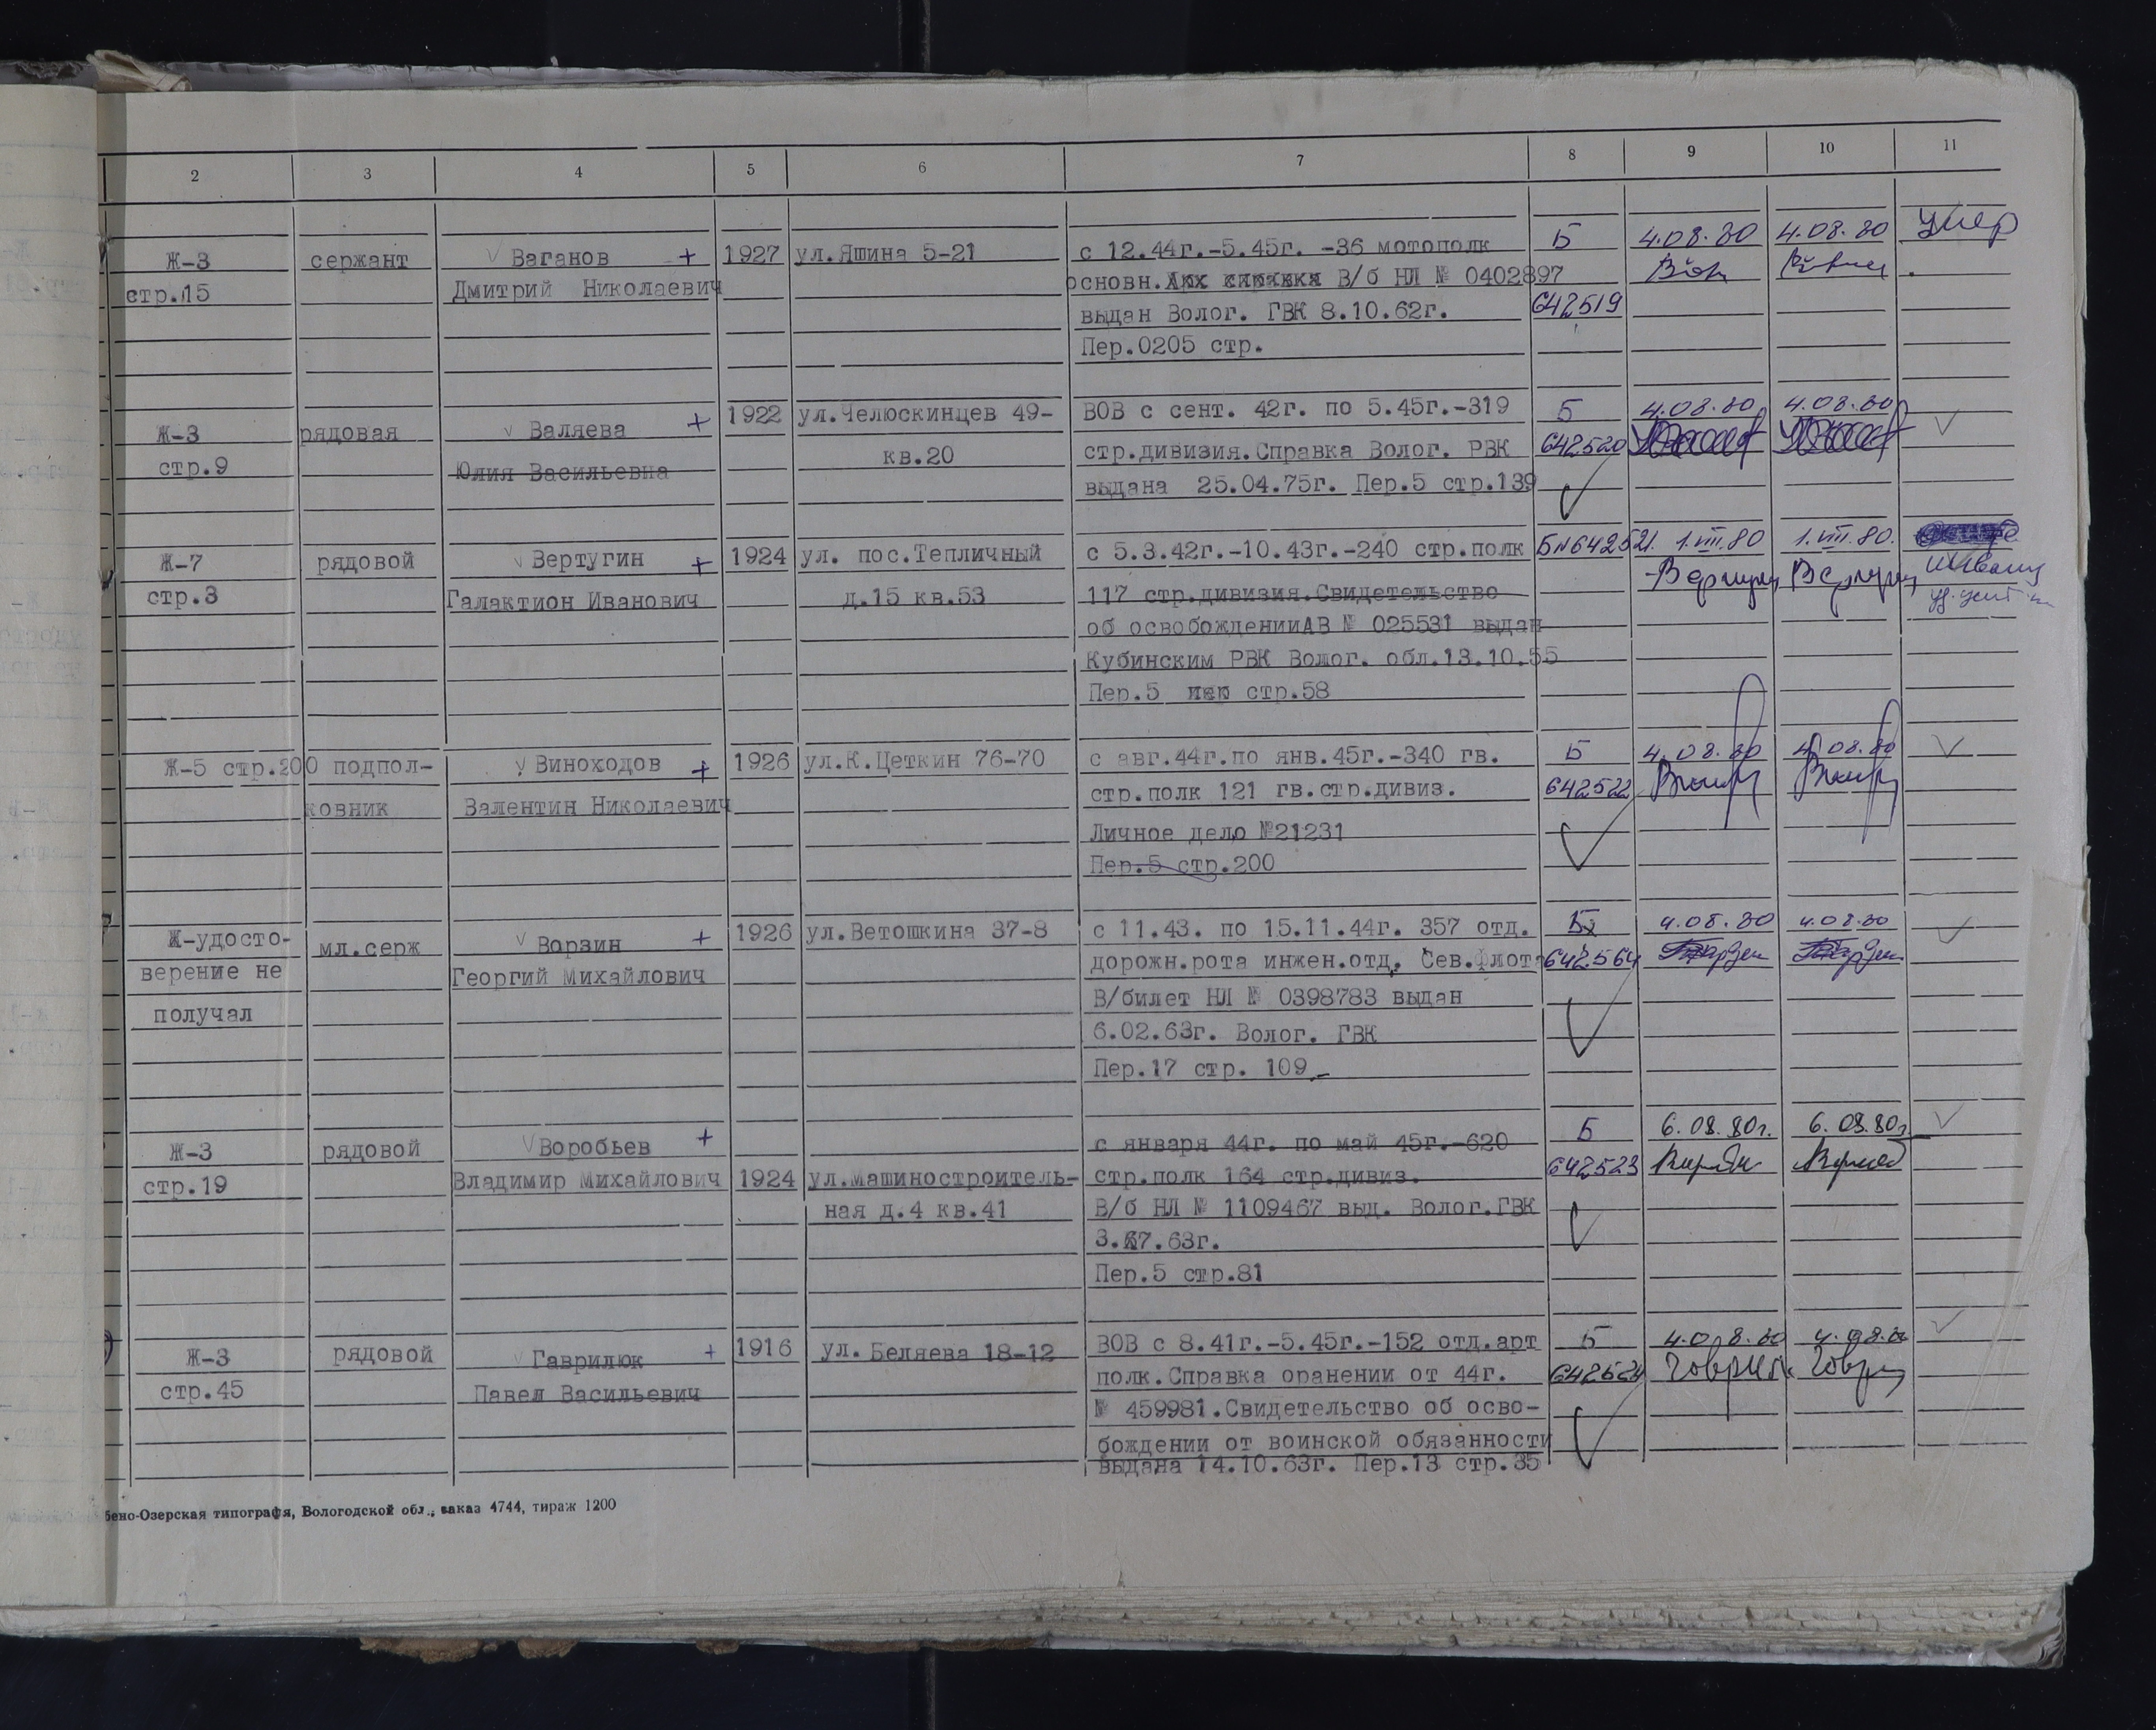 2 3 4 5 6 7 8 9 10 11
Ж-3 сержант Ваганов + 1927 ул.Яшина 5-21 с 12.44г.-5.45г. -36 мотополк Б 4.08.80 4.08.80 умер
стр.15 Дмитрий Николаевич основн. В/б НЛ № 0402897
выдан Волог. ГВК 8.10.62г. 642519
Пер.0205 стр.
Ж-3 рядовая Валяева + 1922 ул.Челюскинцев 49- ВОВ с сент. 42г. по 5.45г.-319 Б 4.08.80 4.08.80
стр.9 Юлия Васильевна кв.20 стр.дивизия.Справка Волог. РВК 642520
выдана 25.04.75г. Пер.5 стр.139
Ж-7 рядовой Вертугин + 1924 ул. пос.Тепличный с 5.3.42г.-10.43г.-240 стр.полк Б№642521. 1.VIII.80 1.VIII.80.
стр.3 Галактион Иванович д.15 кв.53 117 стр.дивизия.Свидетельство
об освобожденииАВ № 025531 выдан
Кубинским РВК Волог. обл.13.10.55
Пер.5 стр.58
Ж-5 стр.200 подпол- Виноходов + 1926 ул.К.Цеткин 76-70 с авг.44г.по янв.45г.-340 гв. Б 4.08.80 4.08.80
ковник Валентин Николаевич стр.полк 121 гв.стр.дивиз. 642522
Личное дело №21231
Пер.5 стр.200
Ж-удосто- мл.серж Ворзин + 1926 ул.Ветошкина 37-8 с 11.43. по 15.11.44г. 357 отд. Б 4.08.80 4.08.80
верение не Георгий Михайлович дорожн.рота инжен.отд. Сев.Флота 642564
получал В/билет НЛ № 0398783 выдан
6.02.63г. Волог. ГВК
Пер.17 стр. 109
Ж-3 рядовой Воробьев + с января 44г. по май 45г.-620 Б 6.08.80г. 6.08.80г.
стр.19 Владимир Михайлович 1924 ул.Машиностроитель- стр.полк 164 стр.дивиз. 642523
ная д.4 кв.41 В/б НЛ № 1109467 выд. Волог.ГВК
3.7.63г.
Пер.5 стр.81
Ж-3 рядовой Гаврилюк + 1916 ул. Беляева 18-12 ВОВ с 8.41г.-5.45г.-152 отд.арт Б 4.08.80 4.08.80
стр.45 Павел Васильевич полк.Справка оранении от 44г. 642524
№ 459981.Свидетельство об осво-
бождении от воинской обязанности
выдана 14.10.63г. Пер.13 стр.35
бено-Озерская типография, Вологодской обл., заказ 4744, тираж 1200